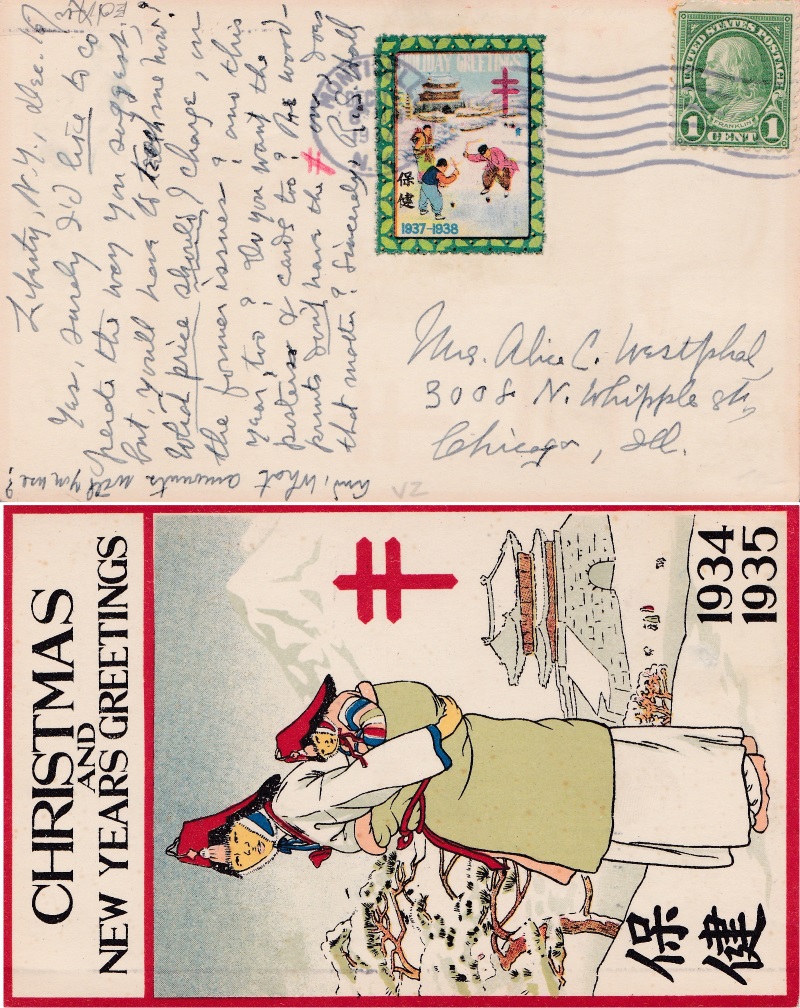 Liberty, N.Y., Dec. 19
Yes, surely I'd like to co
perate the way you suggest,
but, you'll have to teach me how!
What price should I charge, on
the former issues? and this
year, too? Do you want the
posters & cards too? The wood-
prints don't have the ‡ on, does
that matter? Sincerely,
And, what amounts will you use?
HOLIDAY GREETINGS
保
健
1937-1938
UNITED STATES POSTAGE
FRANKLIN
1 CENT 1
Mrs. Alice C. Westphal,
3008 N. Whipple St,
Chicago, Ill.
CHRISTMAS
AND
NEW YEARS GREETINGS
1934
1935
保
健